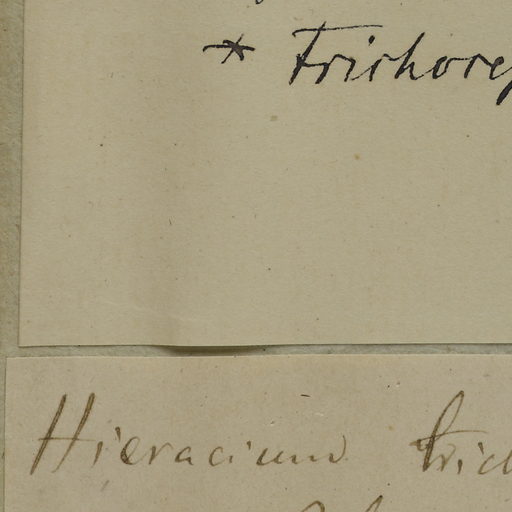 * Trichorep
Hieracium trich